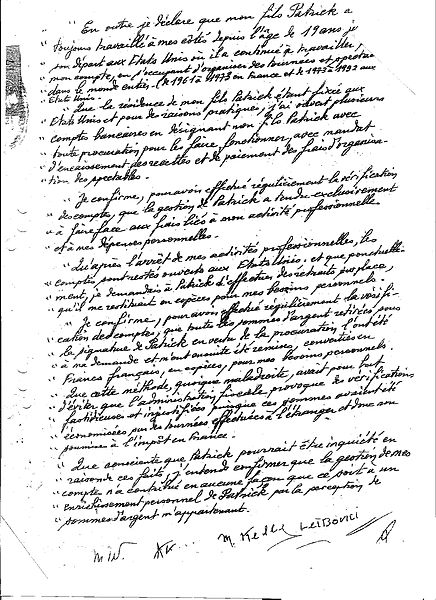 " En outre je déclare que mon fils Patrick a
" toujours travaillé à mes côtés depuis l'âge de 19 ans je
" son départ aux Etats Unis où il a continué à travailler,
" mon compte, en s'occupant d'organiser des tournées et spectac
" dans le monde entier. de 1961 à 1973 en France et de 1973-1992 aux
" Etats Unis.
" Que la résidence de mon fils Patrick étant fixée aux
" Etats Unis et pour des raisons pratiques, j'ai ouvert plusieurs
" comptes bancaires en désignant mon fils Patrick avec
" toute procuration pour les faire fonctionner, avec mandat
" d'encaissement des recettes et de paiement des frais d'organisa-
" tion des spectacles.
" Je confirme, pour avoir effectué régulièrement la vérification
" des comptes, que la gestion de Patrick a tendu exclusivement
" à faire face aux frais liés à mon activité professionnelle
" et à mes dépenses personnelles.
" Qu'après l'arrêt de mes activités professionnelles, les
" comptes sont restés ouverts aux Etats Unis. et que ponctuelle-
" ment, je demandais à Patrick d'effectuer des retraits sur place,
" qu'il me restituait en espèces pour mes besoins personnels.
" Je confirme, pour avoir effectué régulièrement la vérifi-
" cation des comptes, que toutes les sommes d'argent retirées sous
" la signature de Patrick en vertu de la procuration, l'ont été
" à ma demande et m'ont ensuite été remises, converties en
" Francs français, en espèces, pour mes besoins personnels.
" Que cette méthode, quoique maladroite, avait pour but
" d'éviter que l'administration fiscale, provoque des vérifications
" fastidieuses et injustifiées puisque ces sommes avaient été
" économisées sur des tournées effectuées à l'étranger et donc non
" soumises à l'impôt en France.
" Que consciente que Patrick pourrait être inquiété en
" raison de ces faits, j'entends confirmer que la gestion de mes
" comptes n'a contribué en aucune façon que ce soit à un
" enrichissement personnel de Patrick par la perception de
" sommes d'argent m'appartenant.
M Ketty Leibovici